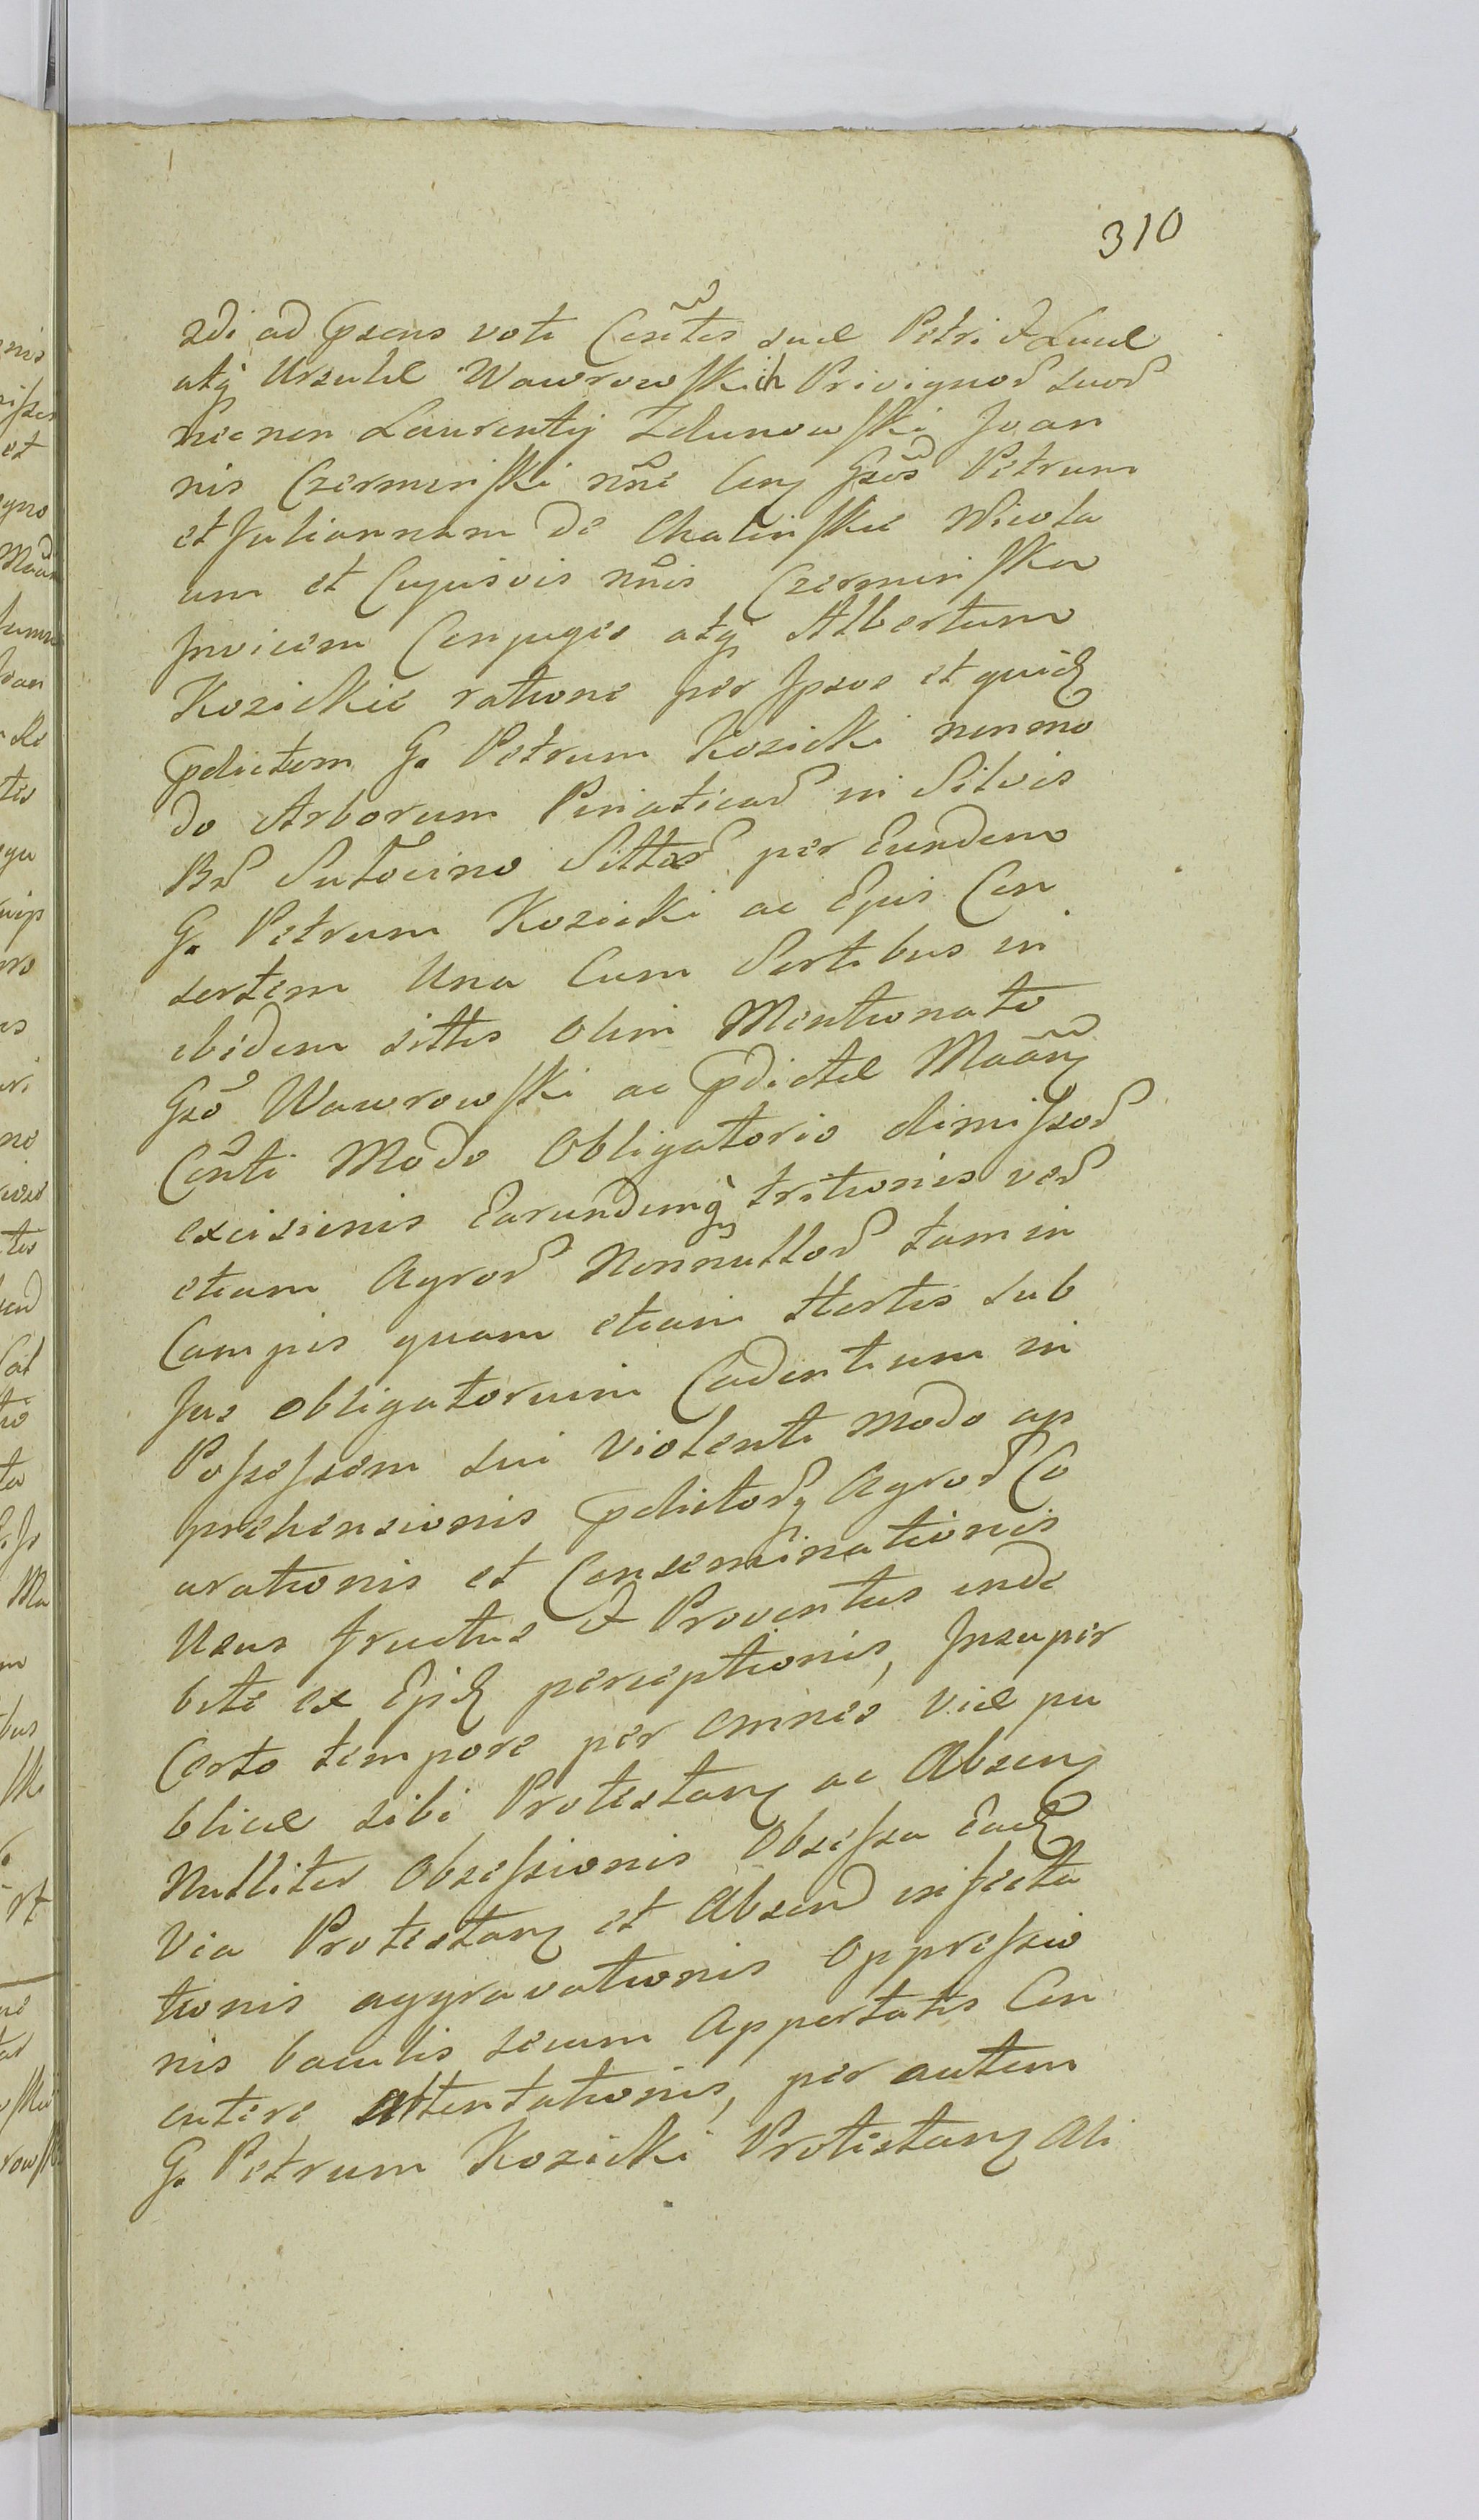 310
2di ad Præns voti Consortis suæ Petri & Lucæ
atq Ursulæ Wawrowskich Privignor suor
necnon Laurentij Zdunowski Joan
nis Czerminski nne Con Gsos Petrum
et Juliannam de Chalinskie Nicola
um et Cujusvis nnis Czerminska
Invicem Conjuges atq Albertum
Kozickie ratione per Ipsos et quid
pdictum G. Petrum Kozicki nonmo
do Arborum Piniaticar in Silvis
Br Sutocino Sittar per Eundem
G. Petrum Kozicki ac Ejus Con
sortem Una Cum Sortibus in
ibidem sittis olim Mentionato
Gso Wawrowski ac pdictæ Maan
Conti Modo Obligatorio dimissor
excisionis Earundemq tritionis ver
etiam Agror Nonnullor tam in
Campis quam etiam Hortis sub
Jus obligatorium Cadentium in
Possessem sui Violenti modo ap
prehensionis pdictor Agror Co
arationis et Conseminationis
Usus fructus & Proventus inde
bite ex Ejsd perceptionis, Insuper
Certo tempore per omnes viæ pu
blicæ sibi Protestan ac Absen
Nulliter Obsessionis Obsessa Ead
Via Protestan et Absen insecta
tionis aggravationis oppressio
nis baculis secum Apportatis Con
cutere attentationis, per autem
G. Petrum Kozicki Protestan Ali